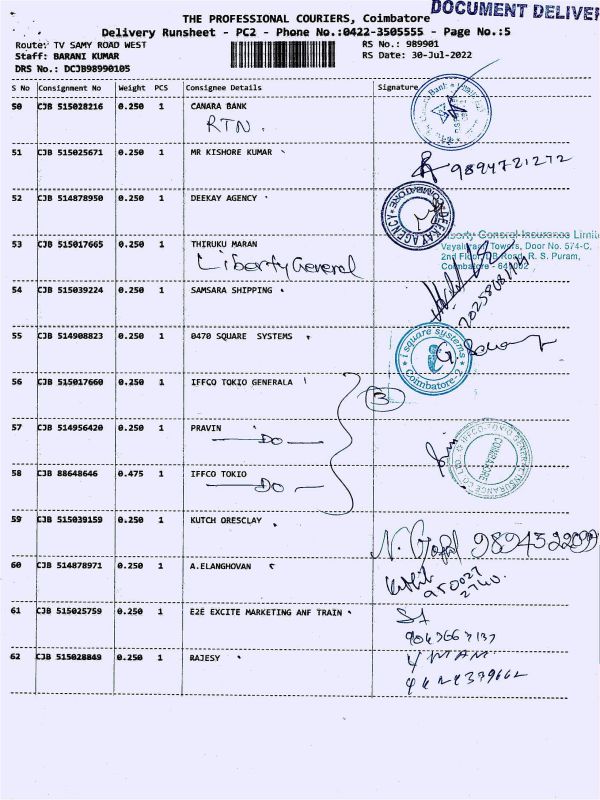 DOCUMENT DELIVER
THE PROFESSIONAL COURIERS, Coimbatore
Delivery Runsheet - PC2 - Phone No.:0422-3505555 - Page No.:5
Route: TV SAMY ROAD WEST
RS No.: 989901
Staff: BARANI KUMAR
RS Date: 30-Jul-2022
DRS No.: DCJB98990105
S No Consignment No Weight PCS Consignee Details Signature
50 CJB 515028216 0.250 1 CANARA BANK
RTN.
51 CJB 515025671 0.250 1 MR KISHORE KUMAR
9894721272
52 CJB 514878950 0.250 1 DEEKAY AGENCY
DEEKAY AGENCY
COIMBATORE
53 CJB 515017665 0.250 1 THIRUKU MARAN
Liberty General
iberty General Insurance Limite
Towers, Door No. 574-C,
2nd Floor, DB Road, R. S. Puram,
Coimbatore - 641002
54 CJB 515039224 0.250 1 SAMSARA SHIPPING
55 CJB 514908823 0.250 1 0470 SQUARE SYSTEMS
i square systems
Coimbatore-2
56 CJB 515017660 0.250 1 IFFCO TOKIO GENERALA
3
57 CJB 514956420 0.250 1 PRAVIN
DO
58 CJB 88648646 0.475 1 IFFCO TOKIO
DO
IFFCO-TOKIO GENERAL INSURANCE CO. LTD.
COIMBATORE
59 CJB 515039159 0.250 1 KUTCH ORESCLAY
60 CJB 514878971 0.250 1 A.ELANGHOVAN
950027
2740.
61 CJB 515025759 0.250 1 E2E EXCITE MARKETING ANF TRAIN
62 CJB 515028849 0.250 1 RAJESY